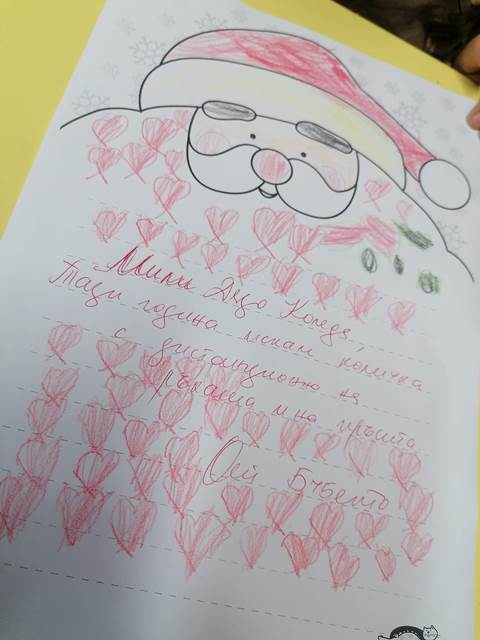 Мили Дядо Коледа,
Тази година искам количка
с дистанционно на
ръката и на пръста
От Бубето